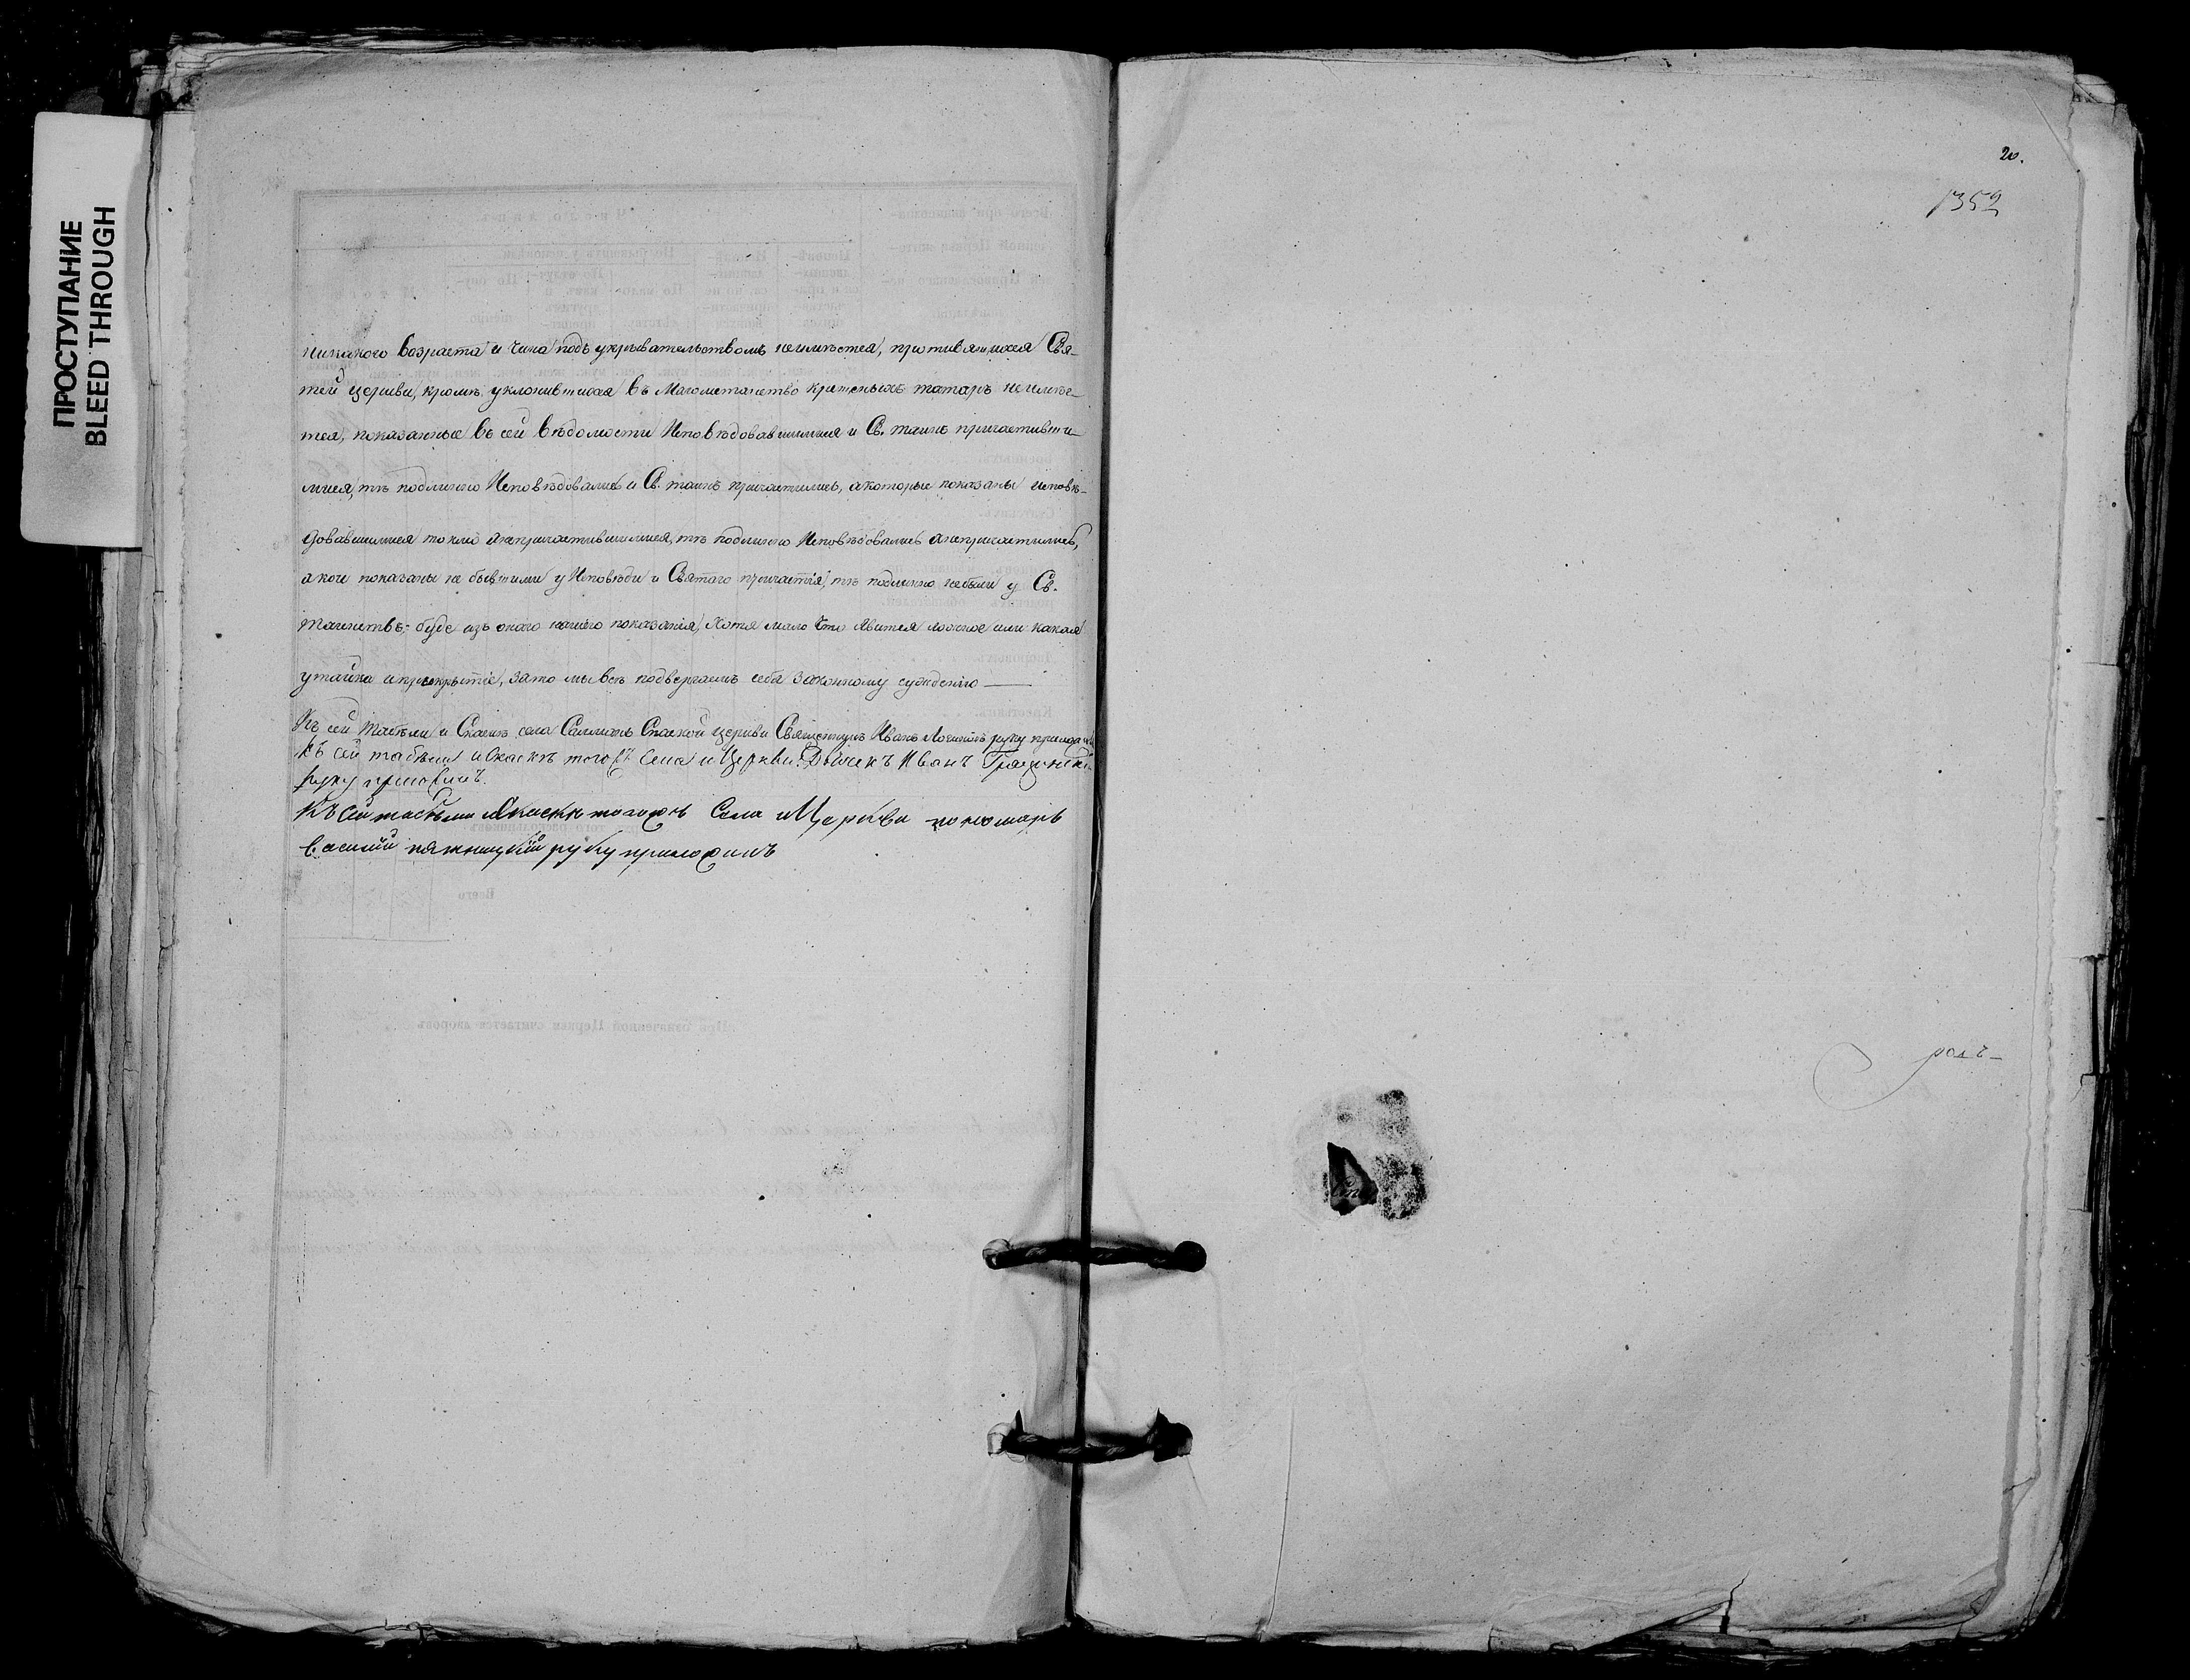 ПРОСТУПАНИЕ
BLEED THROUGH
20.
1352
никакого возраста и чина подъ укрывательствомъ неимѣется, противящихся Свя-
тей церкви, кромѣ уклонившихся въ Магометанство крещеныхъ татаръ неимѣе-
тся, показанные въ сей вѣдомости Исповѣдовавшимися и Св. таинъ причастивши-
мися, тѣ подлинно Исповѣдовались и Св. таинъ причастились, а которые показаны исповѣ-
довавшимися токмо а непричастившимися, тѣ подлинно Исповѣдовались а непричастились,
а кои показаны не бывшими у Исповѣди и Святаго причастія, тѣ подлинно небыли у Св.
таинствъ; буде изъ онаго нашего показанія, хотя мало что явится ложное или какая
утайка и прикрытіе, зато мы всѣ подвергаемъ себя законному сужденію
Къ сей табели и Сказкѣ села Спаской церкви Священникъ Иванъ руку приложилъ
Къ сей табели и сказкѣ того жъ Села и Церкви Дьячекъ Иванъ
руку приложилъ.
Къ сей табели и сказкѣ тогожъ Села и Церкви пономарь
Василий руку приложилъ
Всего
При означенной Церкви считается дворовъ